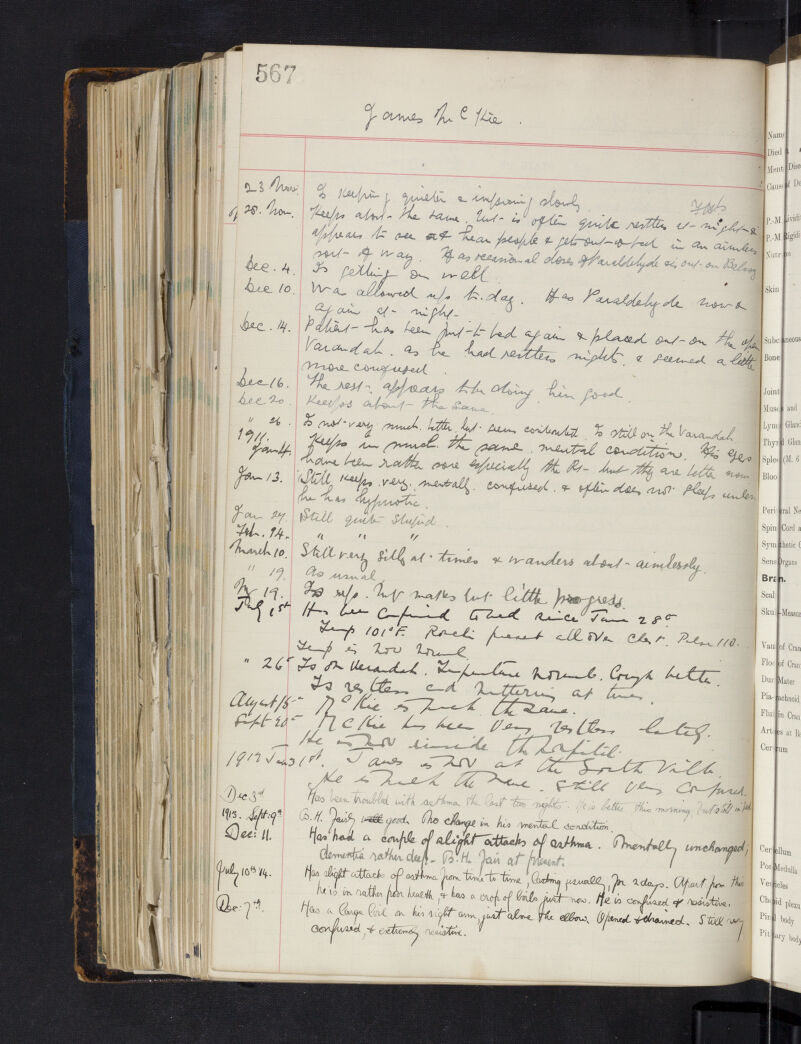 567
James McKie.
23 Nov. Is keeping quieter & improving slowly.
28. Nov. Keeps about the same, but is often quite restless at night &
appears to see & hear people & gets out of bed in an aimless
sort of way. Has occasional doses of Paraldehyde
Dec. 4. Is getting on well.
Dec 10. Was allowed up to-day. Has Paraldehyde now &
again at night.
Dec. 14. Patient has been put to bed again & placed out on the open
Varandah. as he had restless nights, & seemed a little
more confused.
Dec 16. The rest appears to be doing him good.
Dec 20. Keeps about the same.
" 26. Is not very much better, but seems contented. Is still on the Varandah.
1911.
Jan 4. Keeps in much the same mental condition. His eyes
have been rather sore especially the Rt - but they are better now
Jan 13. Still keeps very mentally confused & often does not sleep unless
he has hypnotic.
Jan 27. Still quite stupid.
Feb. 24. " " "
March 10. Still very silly at times & wanders about aimlessly.
" 19. As usual
19. Is up. but makes but little progress.
July 1st Has been confined to bed since June 28th
Temp 101°F. Ronchi present all over chest. Pulse 110.
Temp is now normal
" 26th Is on Verandah. Temperature normal. Cough better.
Is restless and muttering at times.
August 18th McKie is much the same.
Sept 20th McKie has been very restless lately.
He is now inside the hospital.
1912 1st. James is now at the South Villa.
He is much the same. Still very confused.
Dec 3rd Has been troubled with asthma the last two nights. He is better this morning, but still in bed
1913. Sept: 9th B.H. fairly good. No change in his mental condition.
Dec: 11. Has had a couple of slight attacks of asthma. Mentally unchanged,
dementia rather deep. B.H. fair at present.
July 10th 14. Has slight attacks of asthma from time to time, lasting usually, for 2 days. Apart from this
he is in rather poor health, & has a crop of boils just now. He is confused & resistive.
Dec: 7th. Has a large boil on his right arm, just above the elbow. Opened & drained. Still very
confused, & extremely resistive.
Name
Died
Cause
P.-M.
P.-M.
Skin
Bone
Joint
Bloo
Bran.
Scal